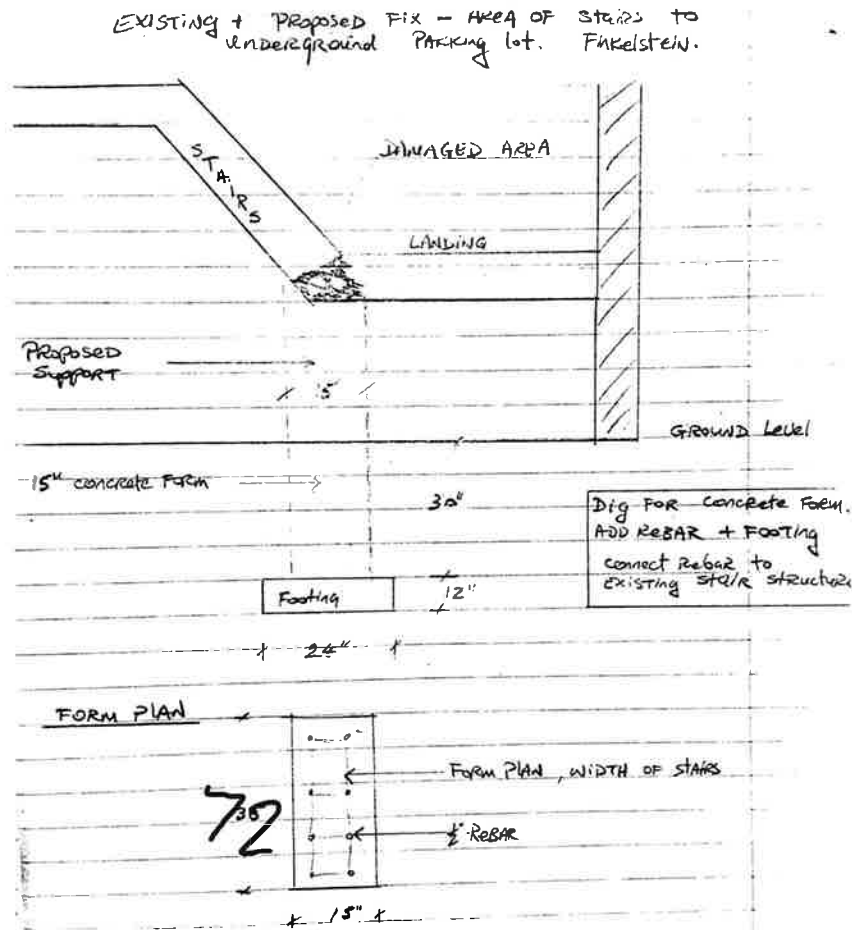 EXISTING + PROPOSED FIX - AREA OF STAIRS TO
UNDERGROUND PARKING LOT. FINKELSTEIN.
STAIRS
DAMAGED AREA
LANDING
PROPOSED
SUPPORT
15"
GROUND LEVEL
15" CONCRETE FORM
30"
DIG FOR CONCRETE FORM.
ADD REBAR + FOOTING
CONNECT REBAR TO
EXISTING STAIR STRUCTURE
Footing
12"
24"
FORM PLAN
FORM PLAN, WIDTH OF STAIRS
72
½" REBAR
15"